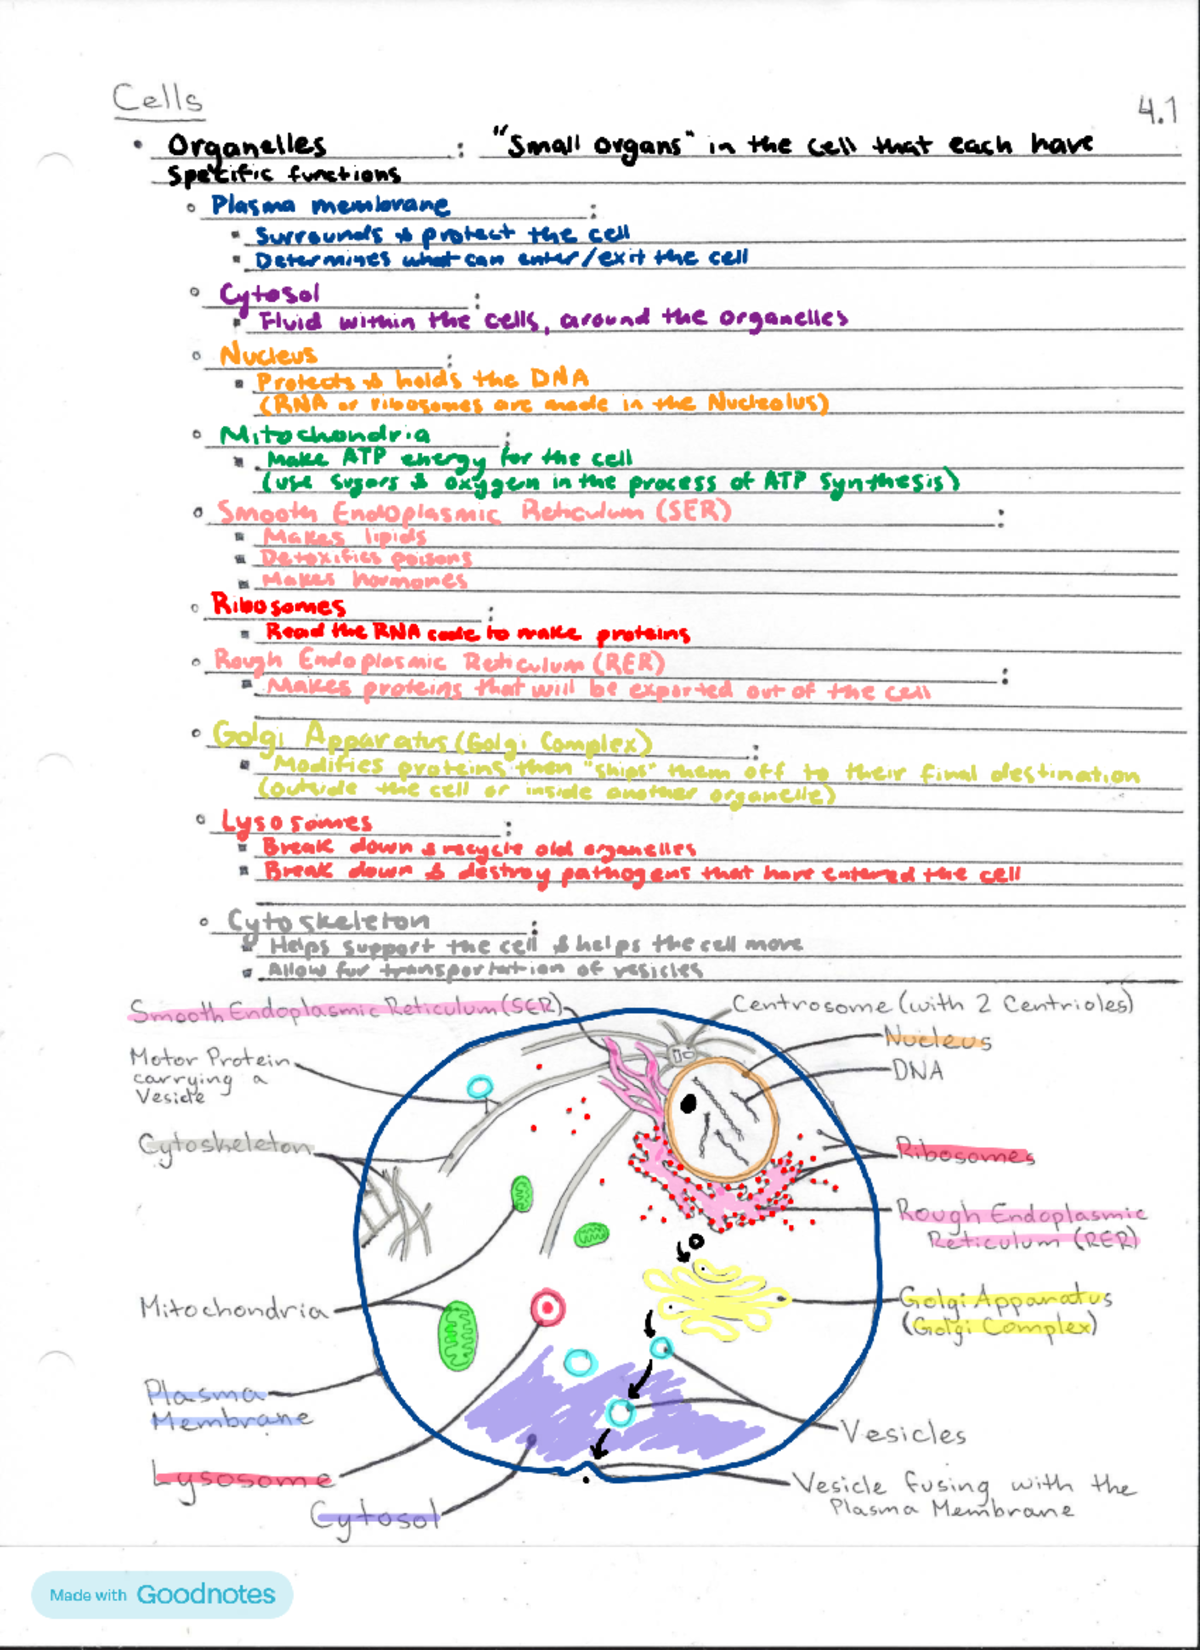 Cells
4.1
• Organelles : "Small organs" in the cell that each have
Specific functions
Plasma membrane :
Surrounds & protect the cell
Determines what can enter/exit the cell
Cytosol :
Fluid within the cells, around the organelles
Nucleus :
Protects & holds the DNA
(RNA or ribosomes are made in the Nucleolus)
Mitochondria :
Make ATP energy for the cell
(use sugars & oxygen in the process of ATP synthesis)
Smooth Endoplasmic Reticulum (SER) :
Makes lipids
Detoxifies poisons
Makes hormones
Ribosomes :
Read the RNA code to make proteins
Rough Endoplasmic Reticulum (RER) :
Makes proteins that will be exported out of the cell
Golgi Apparatus (Golgi Complex) :
Modifies proteins then "ships" them off to their final destination
(outside the cell or inside another organelle)
Lysosomes :
Break down & recycle old organelles
Break down & destroy pathogens that have entered the cell
Cytoskeleton :
Helps support the cell & helps the cell move
Allow for transportation of vesicles
Smooth Endoplasmic Reticulum (SER)
Centrosome (with 2 Centrioles)
Nucleus
Motor Protein
carrying a
Vesicle
DNA
Cytoskeleton
Ribosomes
Rough Endoplasmic
Reticulum (RER)
Mitochondria
Golgi Apparatus
(Golgi Complex)
Plasma
Membrane
Vesicles
Lysosome
Vesicle fusing with the
Plasma Membrane
Cytosol
Made with Goodnotes